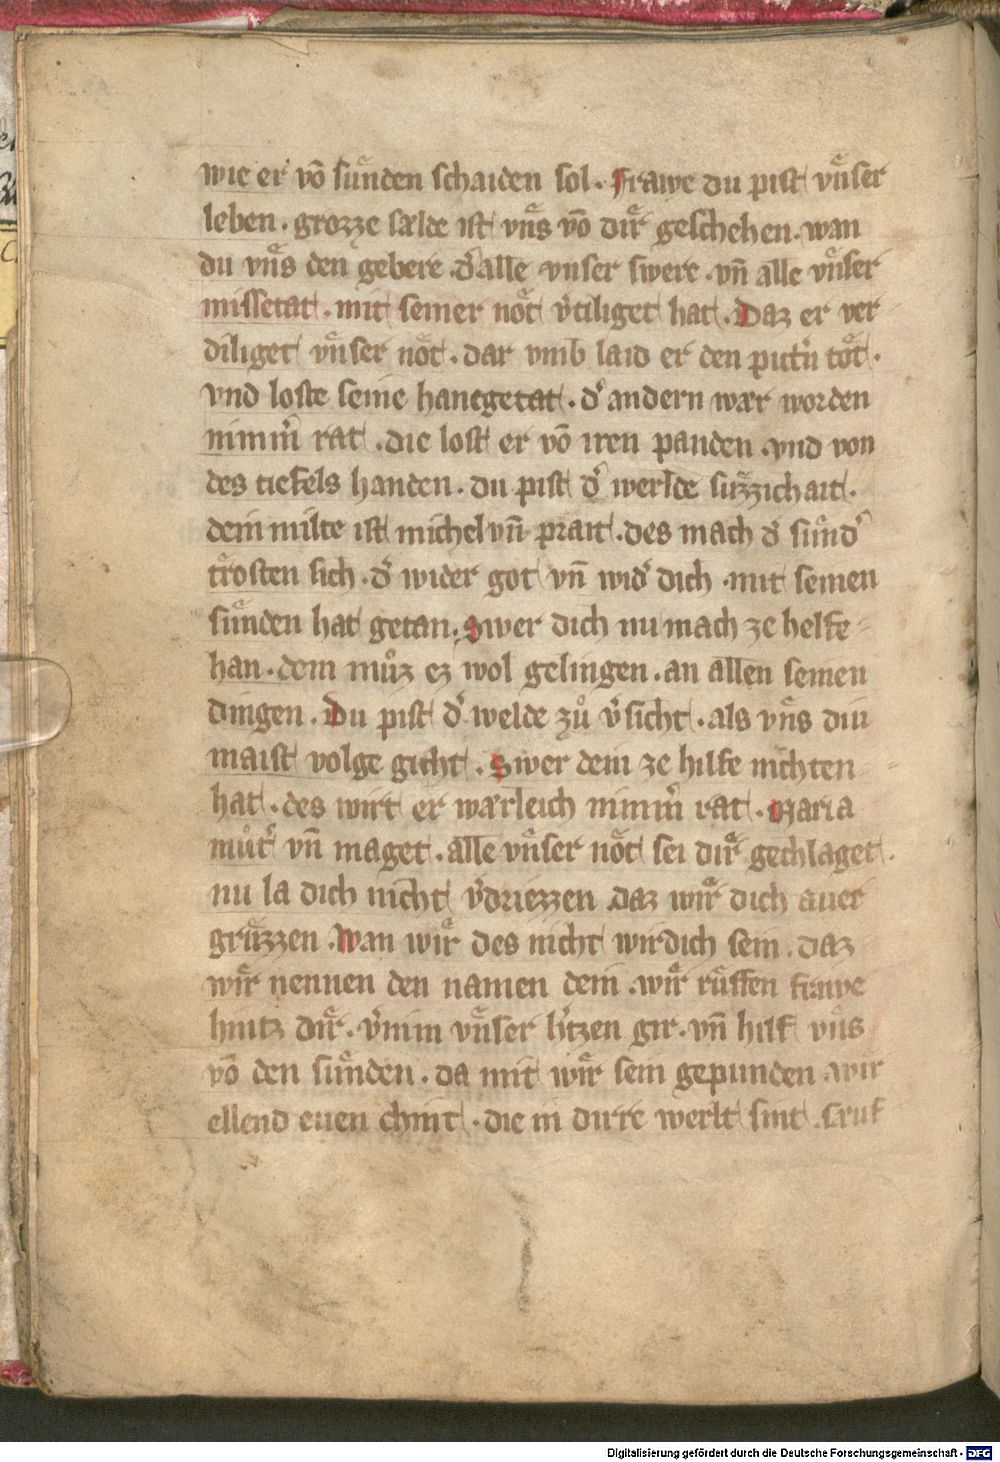 wie er vō sůnden schaiden sol · Frawe du pist vnͤser
leben · grozze sælde ist vnͤs vō dirͤ geschehen · wan
du vnͤs den gebere · d͛ alle vnser swere · vn̄ alle vnͤser
missetat · mit seiner nöt v͛tiliget hat · Daz er ver
diliget vnͤser nöt · dar vmb laid er den pittn̄ töt ·
vnd loste seine hantgetat · d͛ andern wær worden
nimm͛ rat · die lost er vō iren panden · vnd von
des tiefels handen · du pist d͛ werlde süzzichait ·
dein milte ist michel vn̄ prait · des mach d͛ sünd͛
trösten sich · d͛ wider got vn̄ wid͛ dich · mit seinen
sünden hat getan · Swer dich nu mach ze helfe
han · dem můz ez wol gelingen · an allen seinen
dingen · Du pist d͛ welde zů v͛sicht · als vnͤs diu
maist volge gicht · Swer dein ze hilfe nichten
hat · des wirt er wærleich nimm͛ rat · Maria
můt͛ vn̄ maget · alle vnͤser nöt sei dirͤ gechlaget ·
nu la dich nicht v͛driezzen daz wirͤ dich auer
grüzzen · Wan wirͤ des nicht wirdich sein · daz
wirͤ nennen den namen dein · wirͤ rüffen frawe
hintz dirͤ · v͛nim vnͤser h͛tzen gir · vn̄ hilf vnͤs
vō den sünden · da mit wirͤ sein gepunden · wir
ellend euen chint · die in dirre werlt sint ·
Digitalisierung gefördert durch die Deutsche Forschungsgemeinschaft - DFG